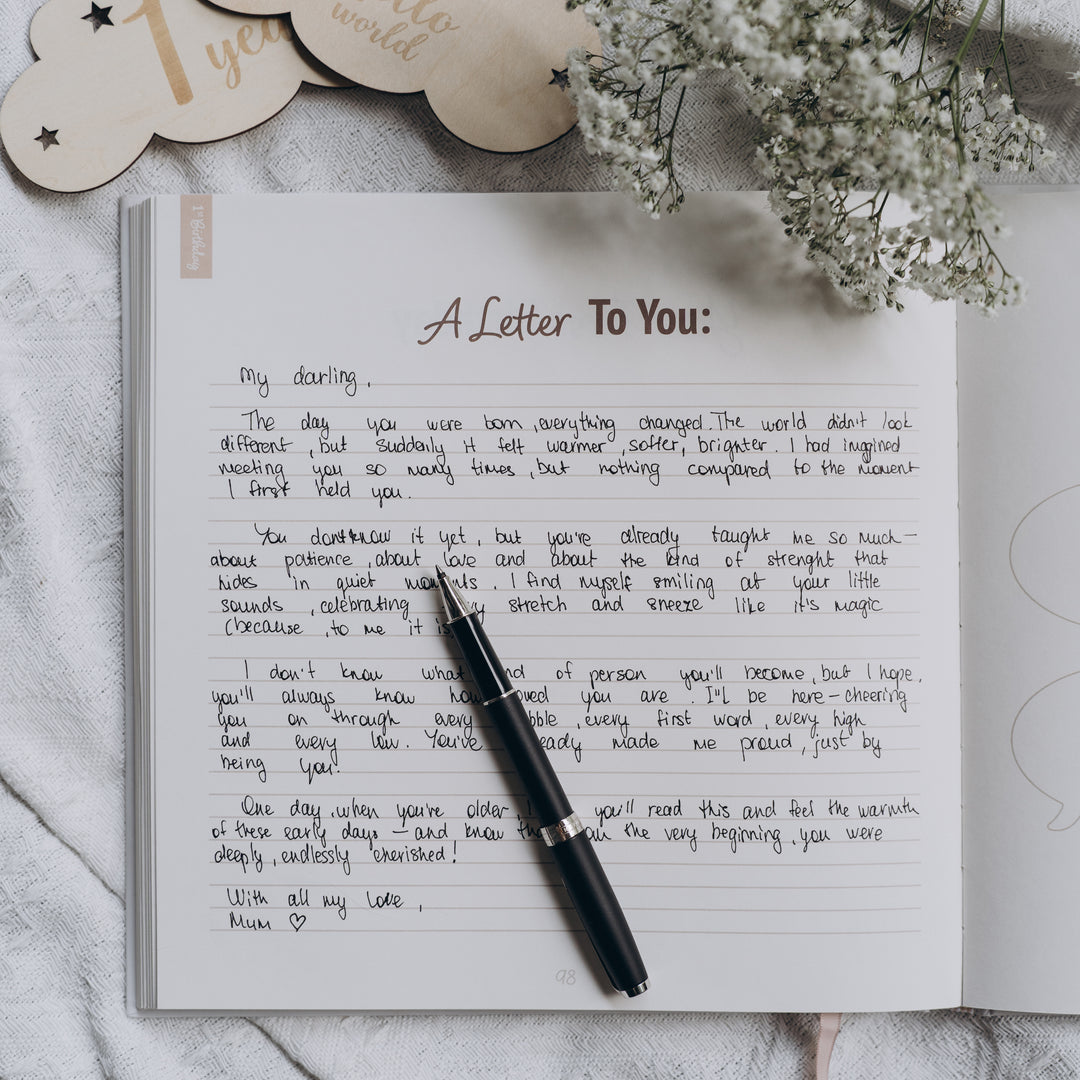 1 year
Hello
world
1st Birthday
A Letter To You:
My darling,
The day you were born, everything changed. The world didn't look
different, but suddenly it felt warmer, softer, brighter. I had imagined
meeting you so many times, but nothing compared to the moment
I first held you.
You don't know it yet, but you're already taught me so much —
about patience, about love and about the kind of strenght that
hides in quiet moments. I find myself smiling at your little
sounds, celebrating stretch and sneeze like it's magic
(because, to me it is
I don't know what of person you'll become, but I hope,
you'll always know how you are. I'll be here — cheering
you on through every, every first word, every high
and every low. You've made me proud, just by
being you.
One day, when you're older, you'll read this and feel the warmth
of these early days — and know the very beginning, you were
deeply, endlessly cherished!
With all my love,
Mum ♡
98